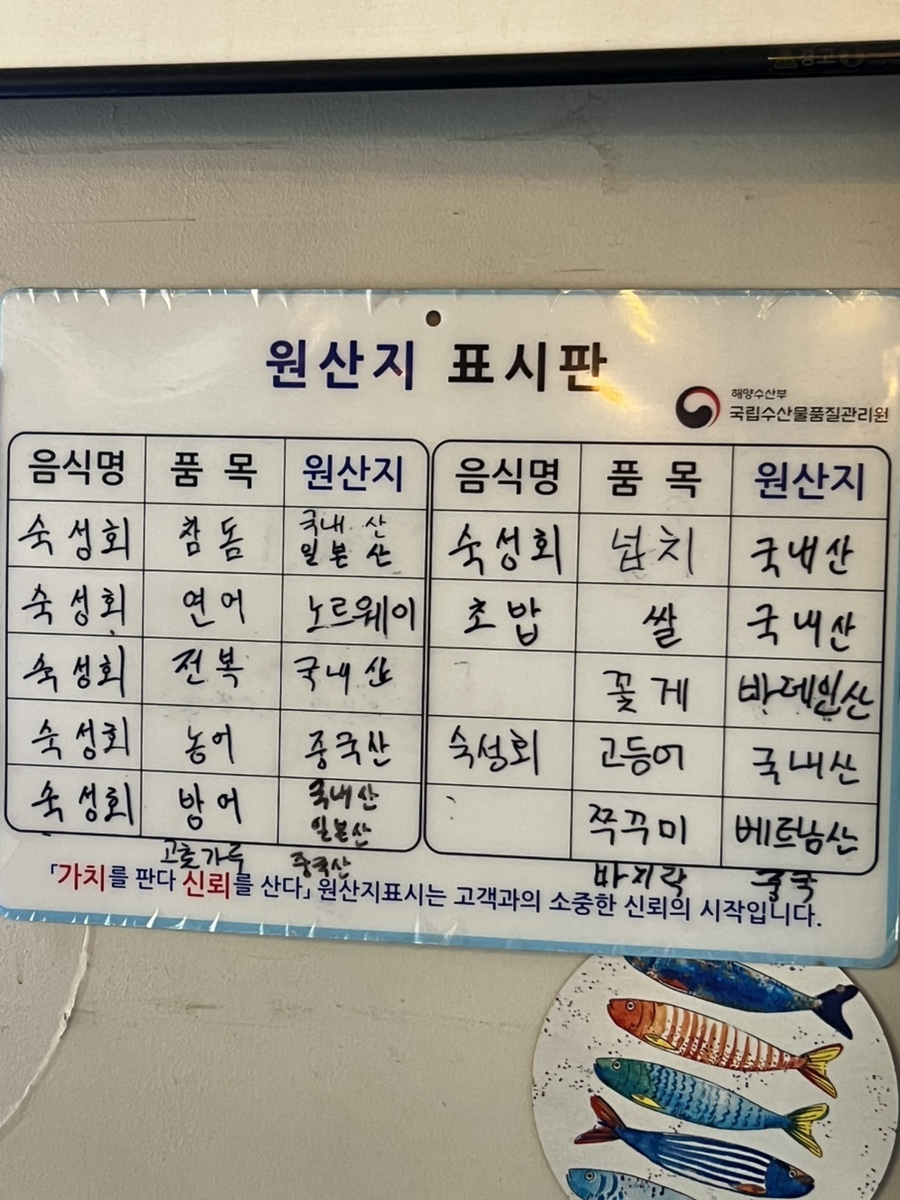 경고
원산지 표시판
해양수산부
국립수산물품질관리원
음식명 품 목 원산지
숙성회 참돔 국내산
일본산
숙성회 연어 노르웨이
숙성회 전복 국내산
숙성회 농어 중국산
숙성회 방어 국내산
일본산
고춧가루 중국산
음식명 품 목 원산지
숙성회 넙치 국내산
초밥 쌀 국내산
꽃게 바레인산
숙성회 고등어 국내산
쭈꾸미 베트남산
바지락 중국
「가치를 판다 신뢰를 산다」 원산지표시는 고객과의 소중한 신뢰의 시작입니다.